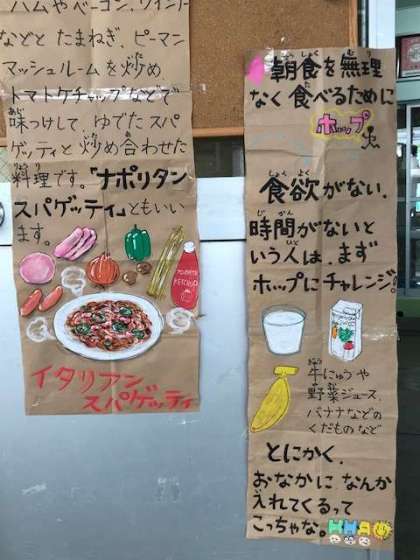 ハムやベーコン、ウインナー
などと たまねぎ、ピーマン
マッシュルームを炒め
トマトケチャップなどで
味つけして ゆでた スパ
ゲッティと炒め合わせた
料理です。「ナポリタン
スパゲッティ」ともいい
ます。
TOMATO
KETCHUP
イタリアン
スパゲッティ
朝食を無理
なく食べるために
ホップ
食欲がない、
時間がないと
いう人は、まず
ホップにチャレンジ!
牛にゅうや
野菜ジュース、
バナナなどの
くだものなど
とにかく、
おなかに なんか
えれてくるって
こっちゃな。